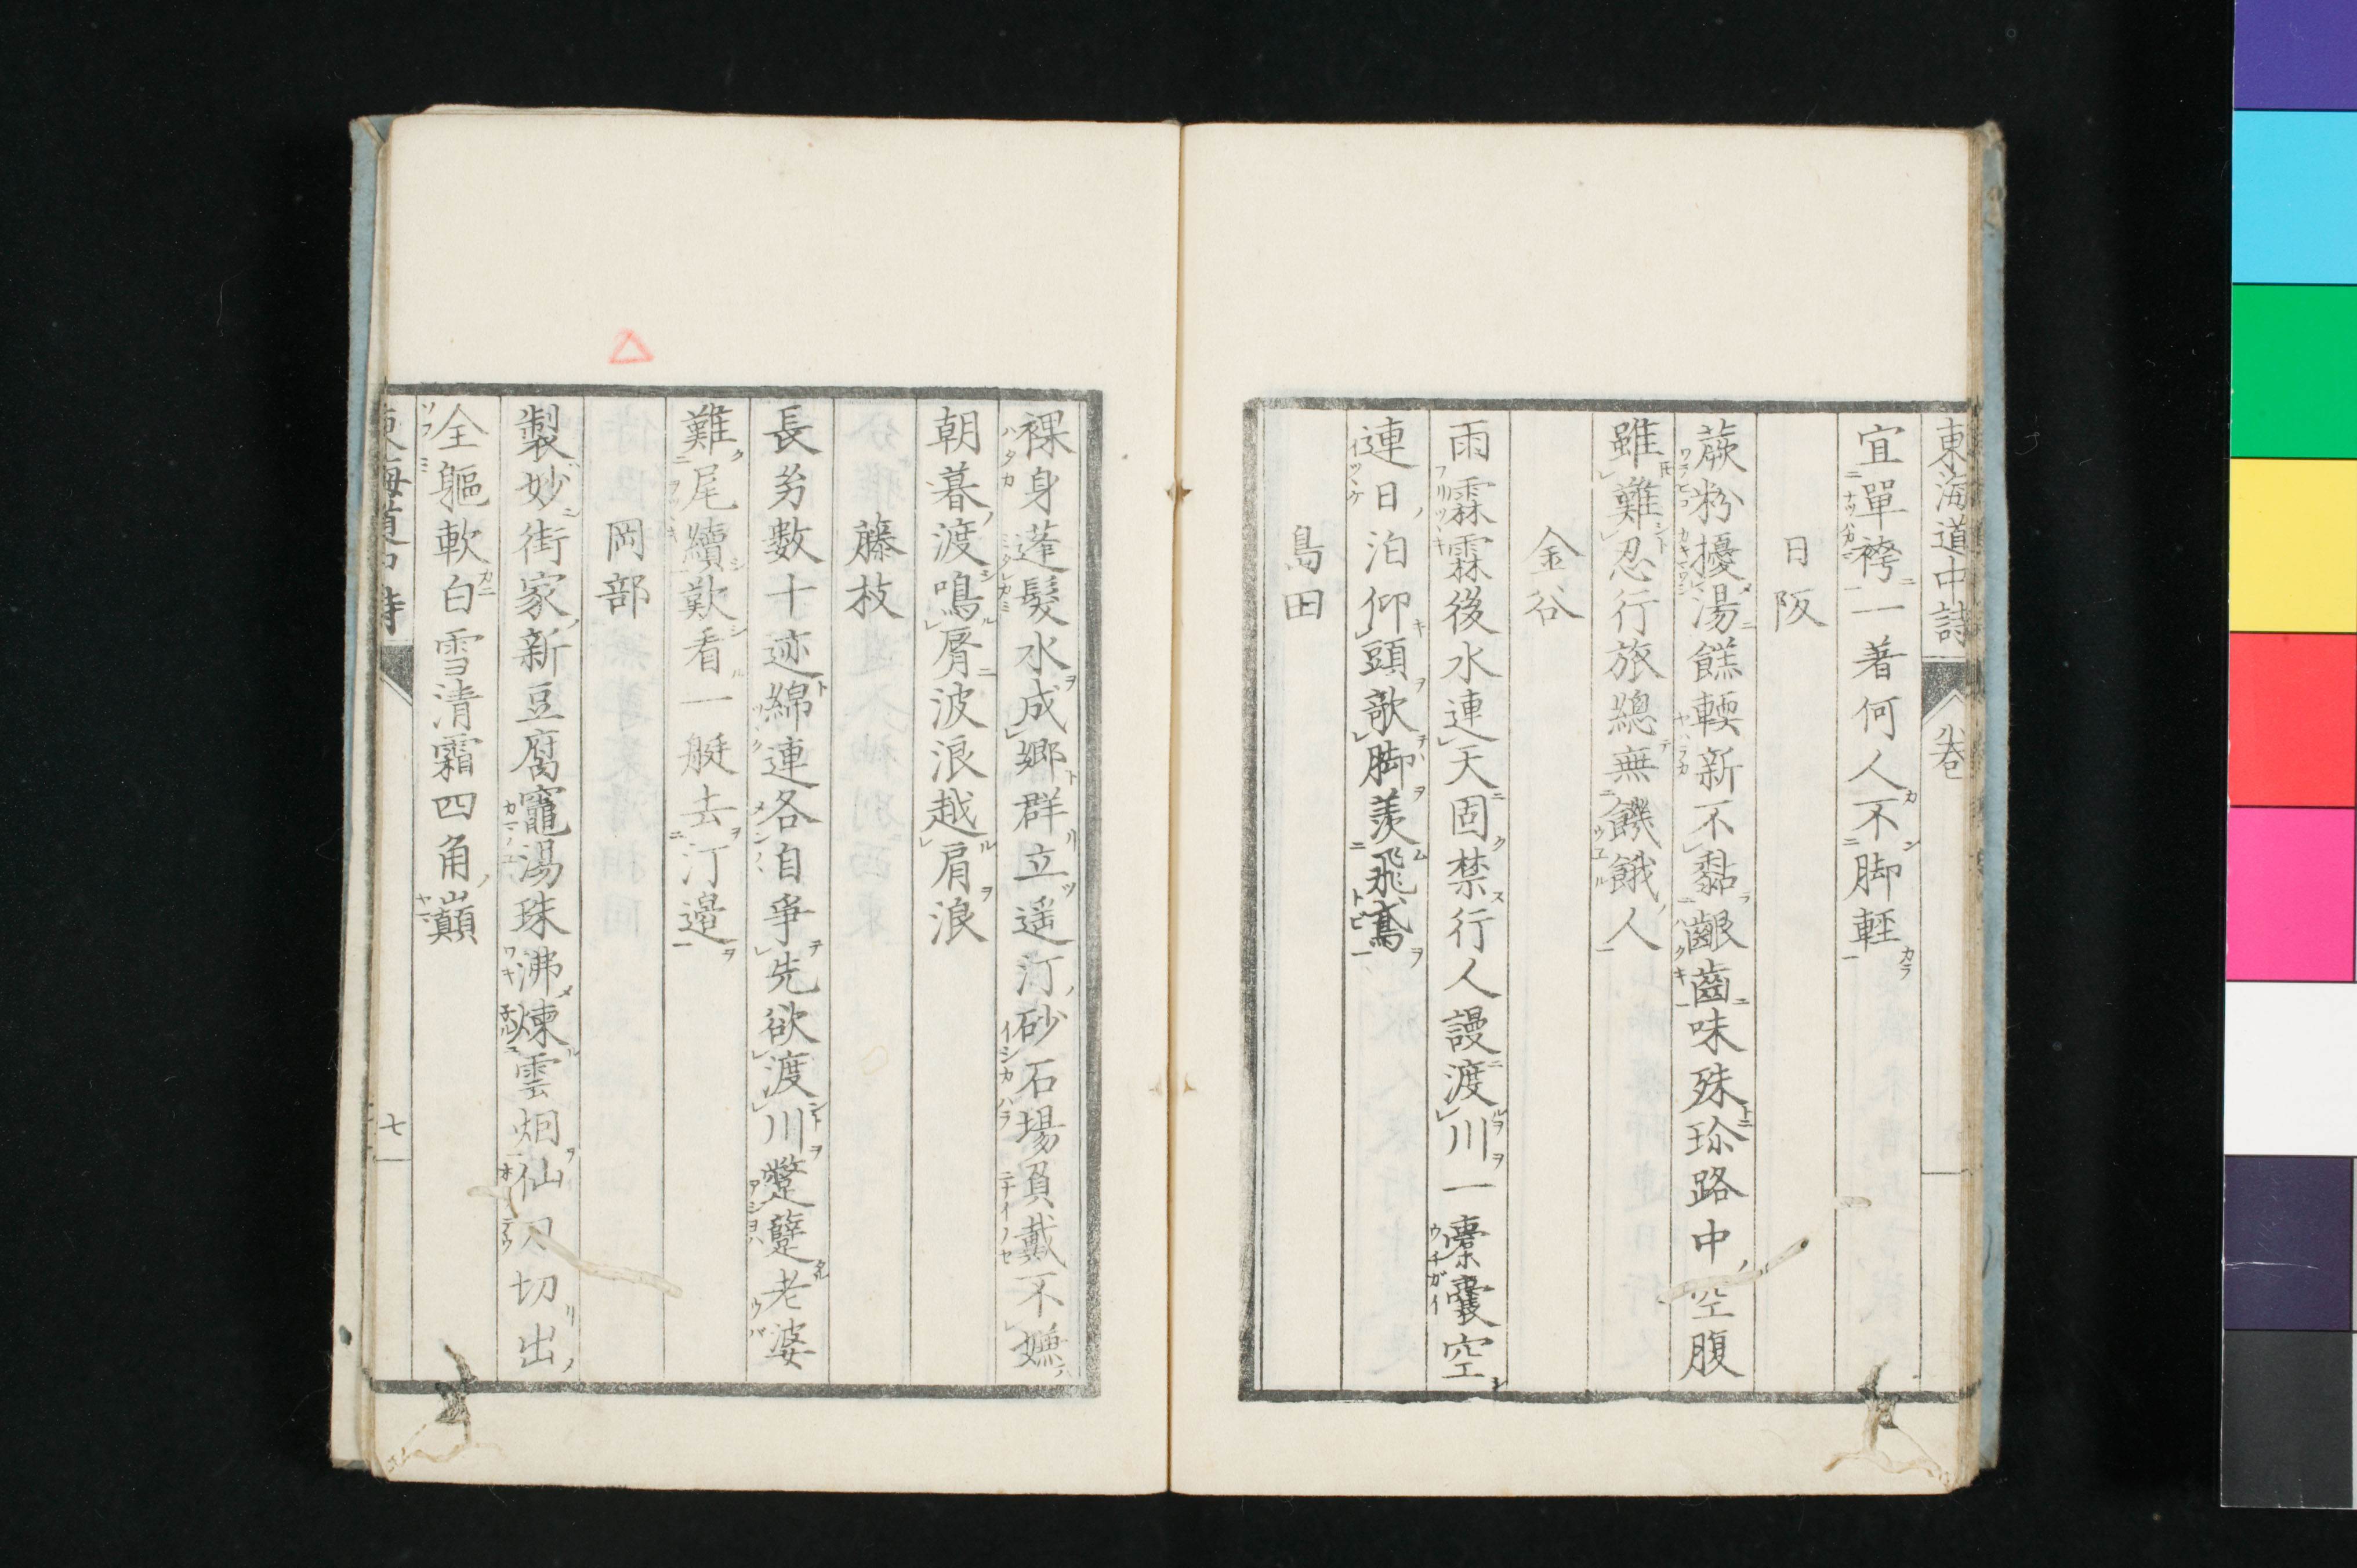 東海道中詩 巻
宜單袴一著何人不脚輕
日阪
蕨粉擾湯餻輭新不黏齦齒味殊珍路中空腹
雖難忍行旅總無饑餓人
金谷
雨霖霖後水連天固禁行人謾渡川一橐囊空
連日泊仰頭歌脚羨飛鳶
島田
裸身蓬髮水成鄉群立遥汀砂石場負戴不嫌
朝暮渡鳴脣波浪越肩浪
藤枝
長刕數十迹綿連各自爭先欲渡川蹩躄老婆
難尾續歎看一艇去汀邉
岡部
製妙街家新豆腐竈湯珠沸煉雲烟仙刀切出
全軀軟白雪清霜四角巓
東海道中詩 七